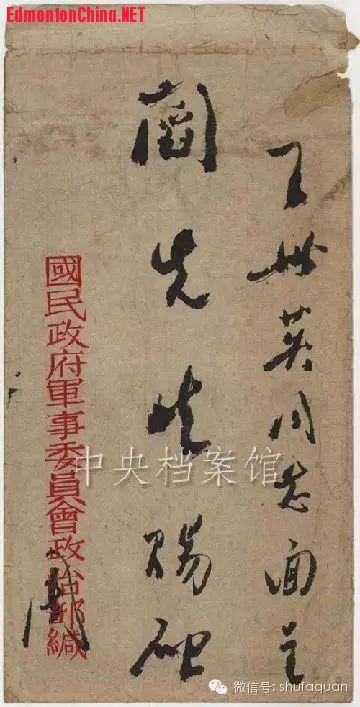 EdmontonChina.NET
王世英同志面呈
閻先生賜啟
國民政府軍事委員會政治部緘
周
中央档案馆
微信号: shufaquan